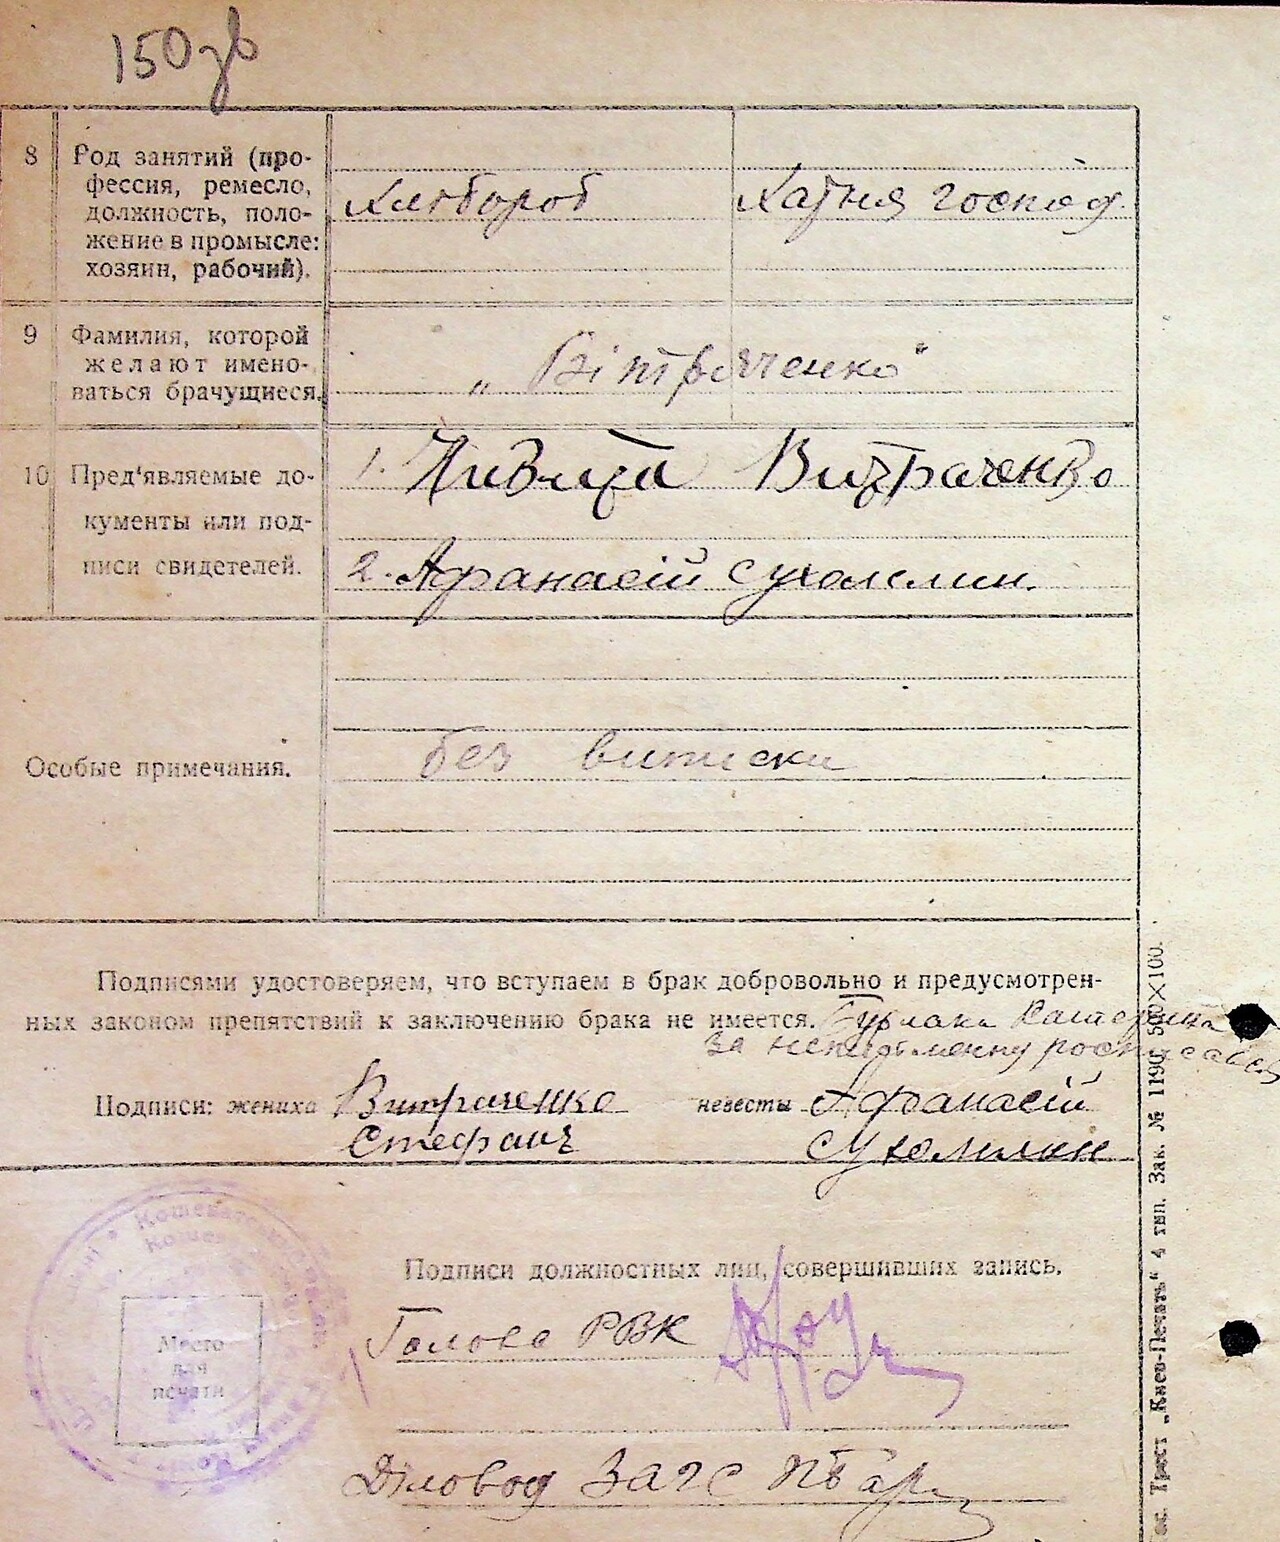 150 зв
8 Род занятий (про-
фессия, ремесло,
должность, поло-
жение в промысле:
хозяин, рабочий).
Хлібороб
Хатня господ.
9 Фамилия, которой
желают имено-
ваться брачущиеся.
„Вітраченко"
10 Пред'являемые до-
кументы или под-
писи свидетелей.
1. Витраченко
2. Афанасій Сухомлин.
Особые примечания.
без виписки
Подписями удостоверяем, что вступаем в брак добровольно и предусмотрен-
ных законом препятствий к заключению брака не имеется. Бурлака Катерина
за неписьменну росписався
Подписи: жениха Витраченко
Стефанъ
невесты Афанасій
Сухомлин
Подписи должностных лиц, совершивших запись.
Голова РВК
Діловод ЗАГС
Место
для
печати
Трест „Киев-Печать" 4 тип. Зак. № 1190. 500×100.